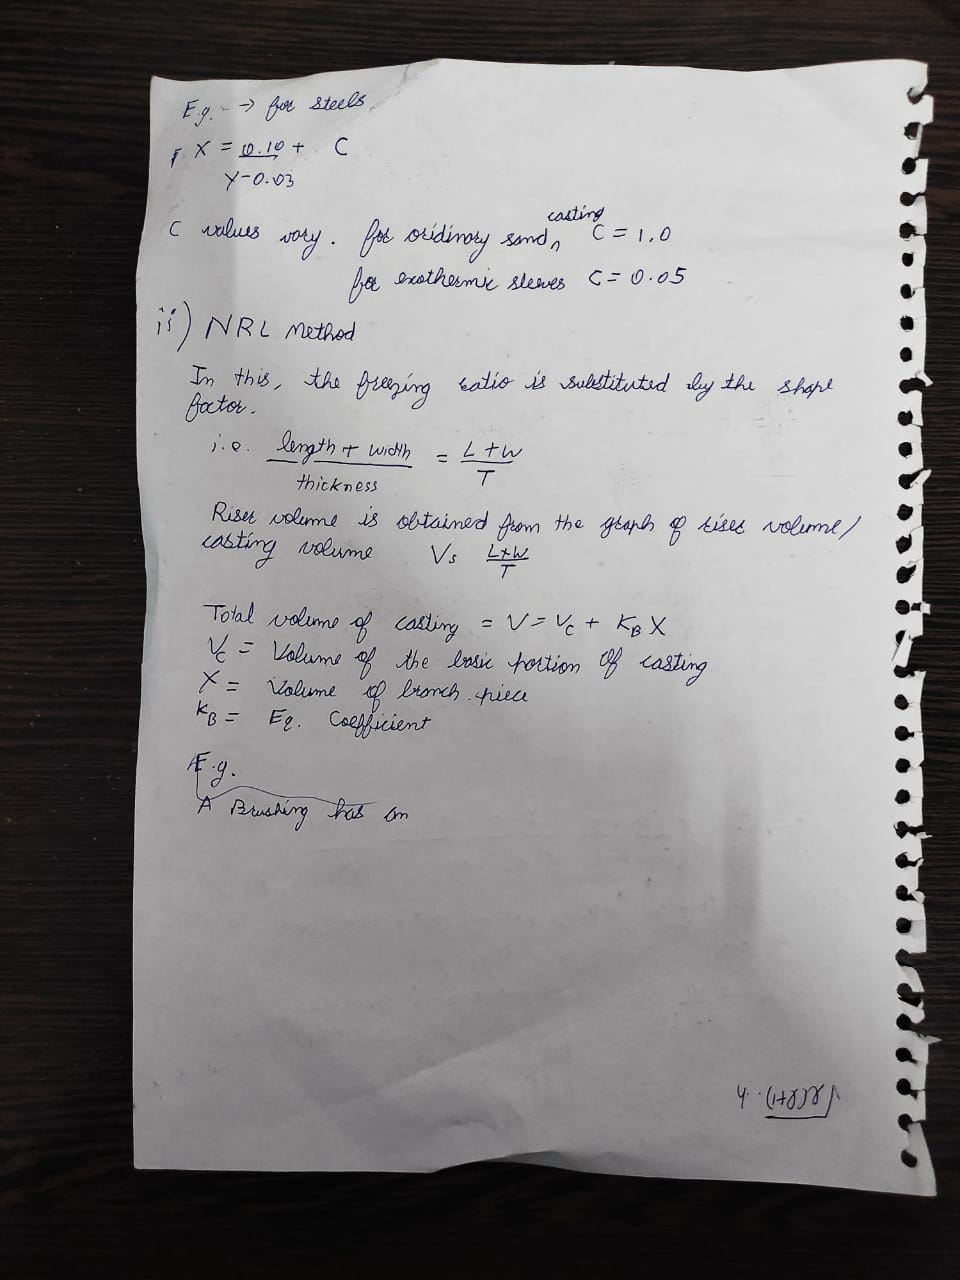 E.g. → for steels
X = 0.10 + C
Y-0.03
casting
C values vary. for oridinary sand^ C = 1.0
for exothermic sleeves C = 0.05
ii) NRL Method
In this, the freezing ratio is substituted by the shape
factor.
i.e. length + width = L+W
thickness T
Riser volume is obtained from the graph of riser volume/
casting volume Vs L+W
T
Total volume of casting = V = Vc + KB X
Vc = Volume of the basic portion of casting
X = Volume of branch piece
KB = Eq. Coefficient
E.g.
A Brushing has an